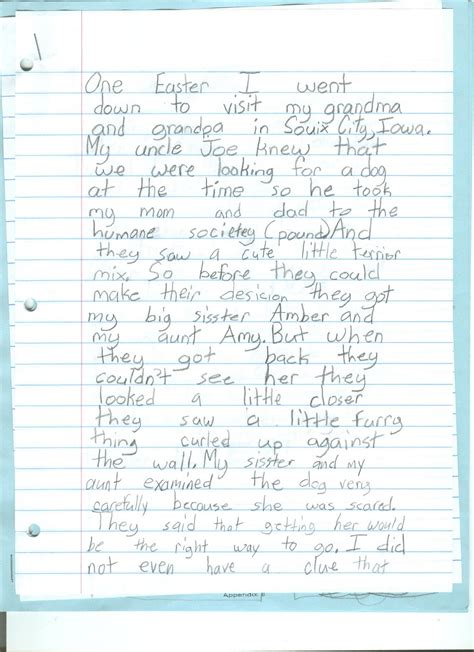 1
One Easter I went
down to visit my grandma
and grandpa in Souix City, Iowa.
My uncle Joe knew that
we were looking for a dog
at the time so he took
my mom and dad to the
humane societey (pound) And
they saw a cute little terrior
mix. So before they could
make their desicion they got
my big sisster Amber and
my aunt Amy. But when
they got back they
couldn't see her they
looked a little closer
they saw a little furry
thing curled up against
the wall. My sisster and my
aunt examined the dog very
carefully because she was scared.
They said that getting her would
be the right way to go. I did
not even have a clue that
Appendix